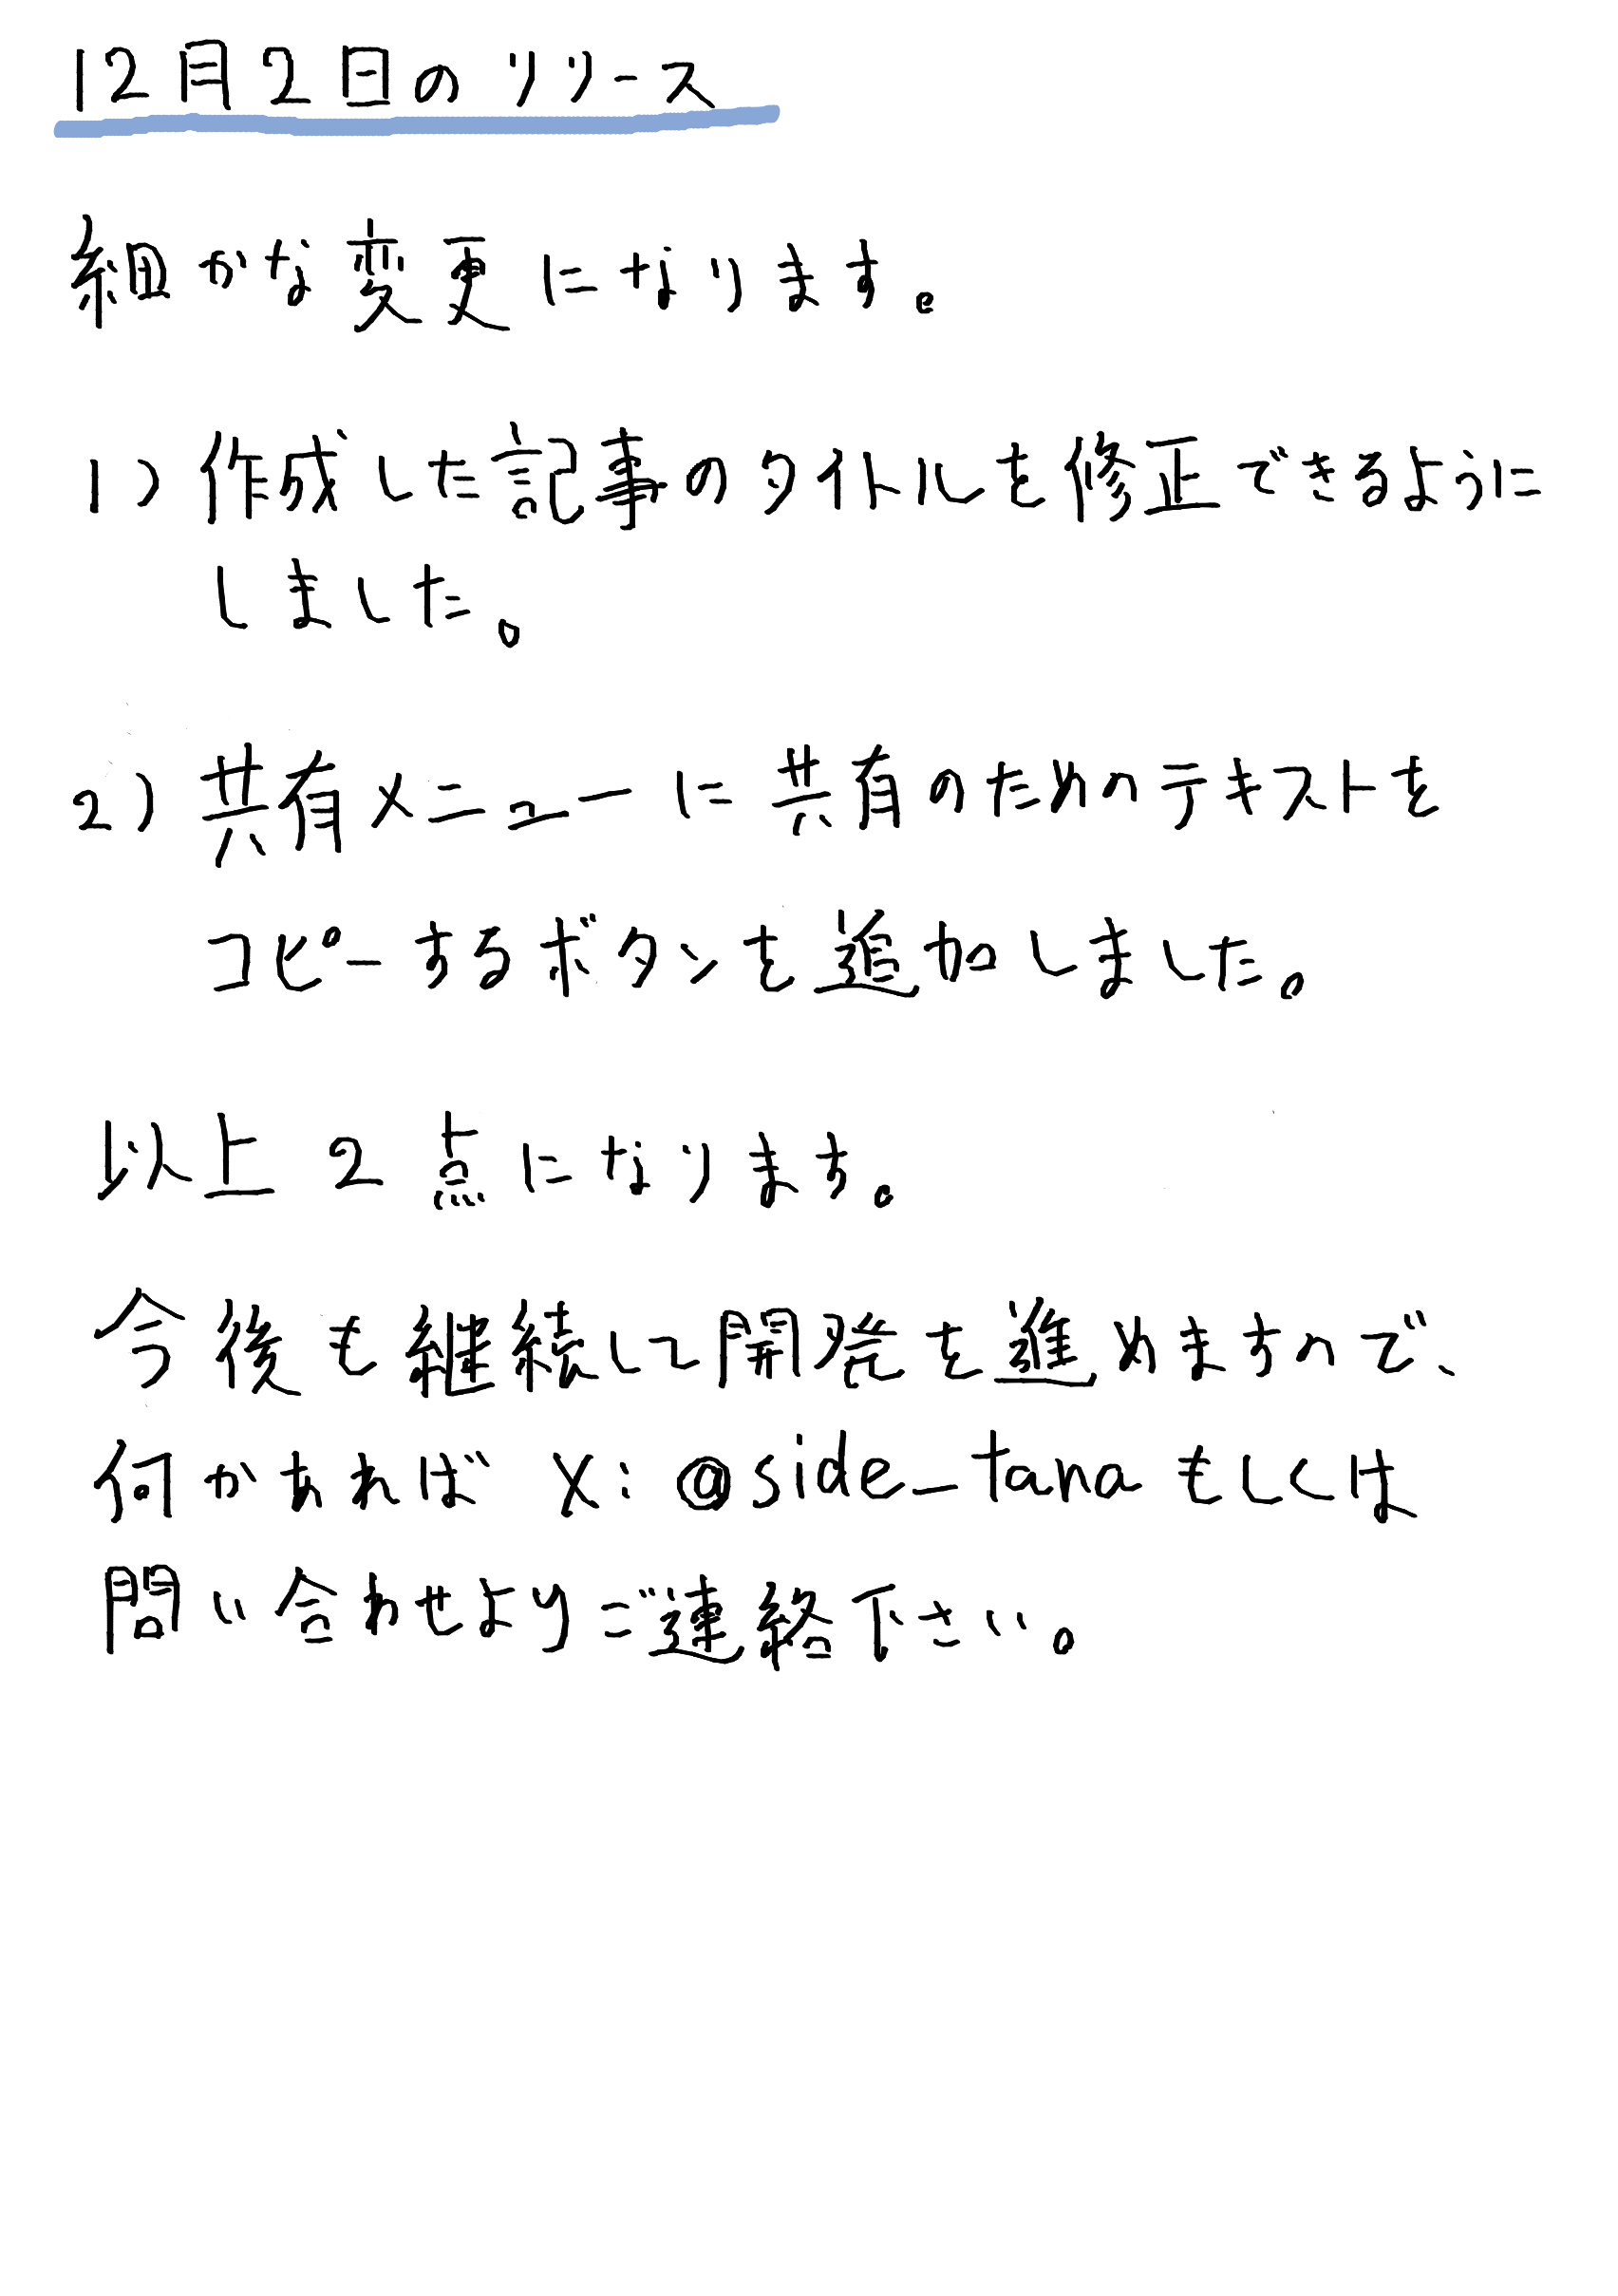 12月2日のリリース
細かな変更になります。
1) 作成した記事のタイトルを修正できるように
しました。
2) 共有メニューに共有のためのテキストを
コピーするボタンを追加しました。
以上2点になります。
今後も継続して開発を進めますので、
何かあれば X: @side_tana もしくは
問い合わせよりご連絡下さい。